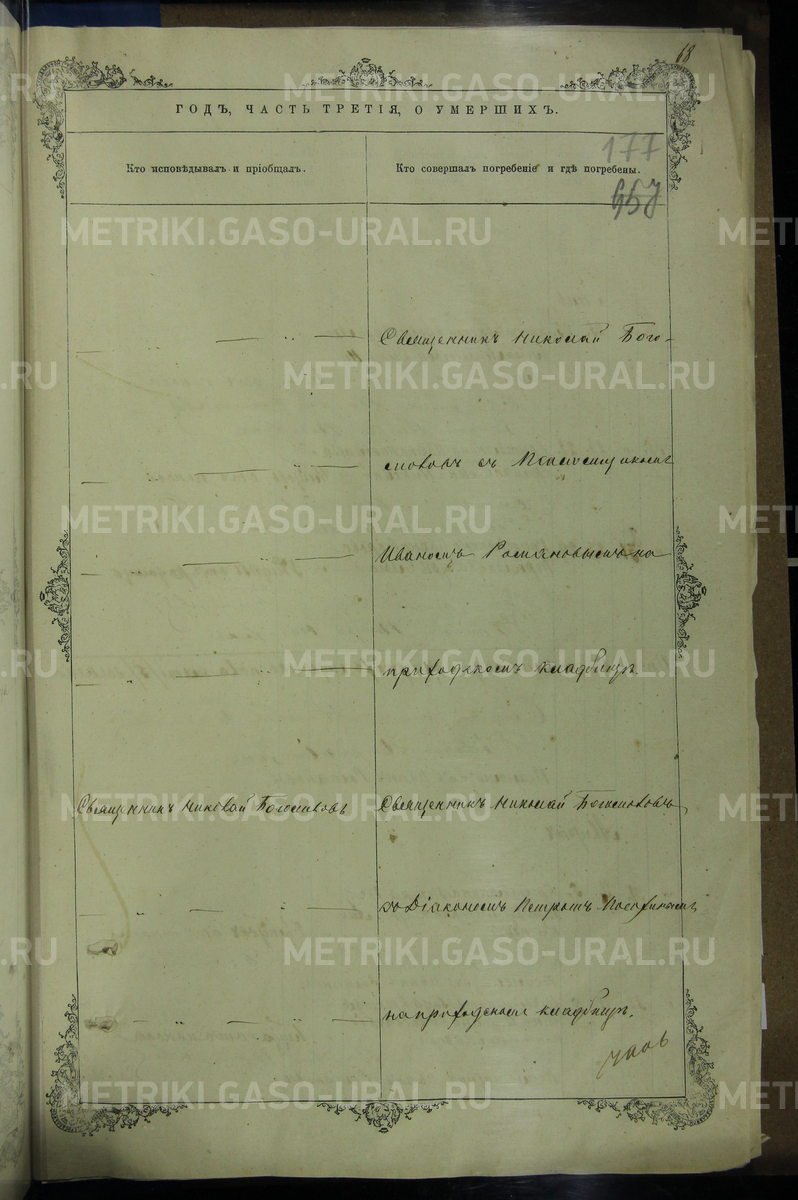 18
ГОДЪ, ЧАСТЬ ТРЕТІЯ, О УМЕРШИХЪ.
177
Кто исповѣдывалъ и пріобщалъ.
Кто совершалъ погребеніе и гдѣ погребены.
957
Священникъ Николай Бого-
слововъ съ Псаломщикомъ
Иваномъ Романовымъ на
приходскомъ кладбищѣ.
Священникъ Николай Богослововъ
Священникъ Николай Богослововъ,
со Діакономъ Петромъ
на приходскомъ кладбищѣ.
METRIKI.GASO-URAL.RU